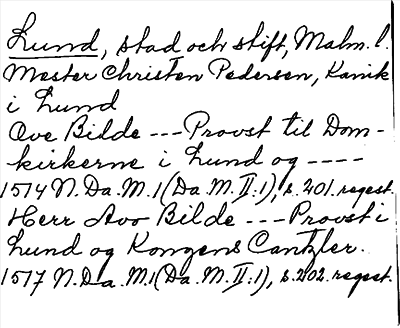 Lund, stad och stift, Malm. l.
Mester Christen Pedersen, Kanik
i Lund
Ove Bilde --- Provst til Dom-
kirkerne i Lund og ----
1514 N. Da. M. 1 (Da. M. II:1), s. 201. regest.
Herr Avo Bilde --- Provst i
Lund og Kongens Cantzler.
1517 N. Da. M. 1 (Da. M. II:1), s. 202. regest.